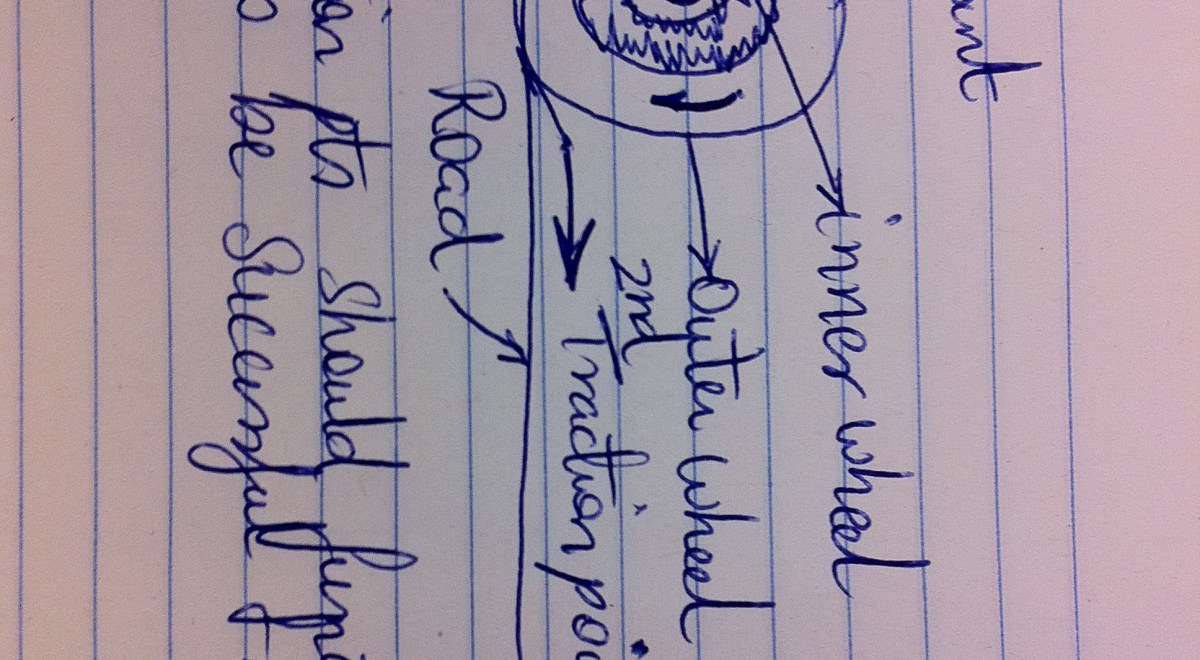 inner wheel
Outer wheel
2nd
Traction poi
Road
on pts should
be Successful